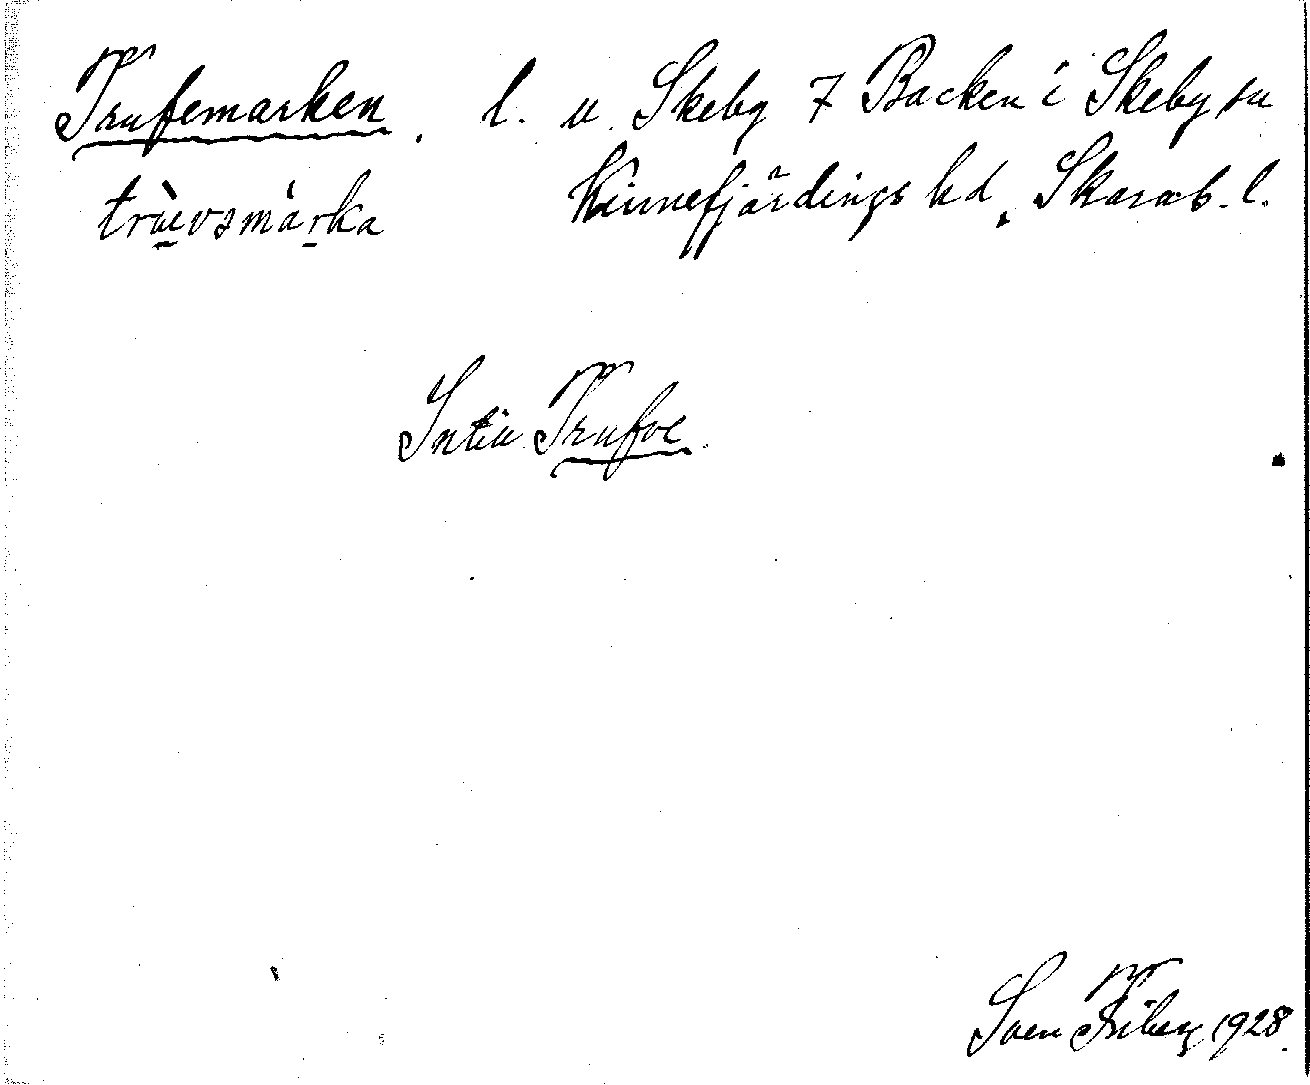 Trufemarken. l. u. Skeby 7 Backen i Skeby sn
truvsmarka Kinnefjärdings hd, Skarab. l.
Intill Trufve.
Sven Friberg 1928.